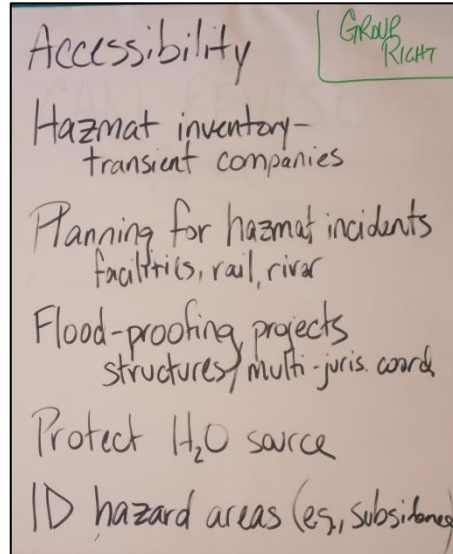 GROUP
RIGHT
Accessibility
Hazmat inventory-
transient companies
Planning for hazmat incidents
facilities, rail, river
Flood-proofing projects
structures/multi-juris. coord
Protect H₂O source
ID hazard areas (e.g., subsidence)